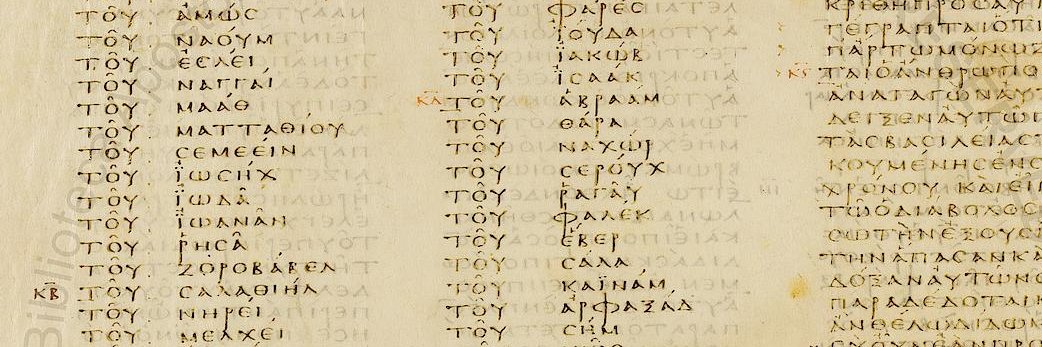 ΤΟΥ ΑΜΩϹ
ΤΟΥ ΝΑΟΥΜ
ΤΟΥ ΕϹΛΕΙ
ΤΟΥ ΝΑΓΓΑΙ
ΤΟΥ ΜΑΑΘ
ΤΟΥ ΜΑΤΤΑΘΙΟΥ
ΤΟΥ ϹΕΜΕΕΙΝ
ΤΟΥ ΪΩϹΗΧ
ΤΟΥ ΪΩΔΑ
ΤΟΥ ΪΩΑΝΑΝ
ΤΟΥ ΡΗϹΑ
ΤΟΥ ΖΟΡΟΒΑΒΕΛ
ΚΒ ΤΟΥ ϹΑΛΑΘΙΗΛ
ΤΟΥ ΝΗΡΕΙ
ΤΟΥ ΜΕΛΧΕΙ
ΤΟΥ ΦΑΡΕϹ
ΤΟΥ ΪΟΥΔΑ
ΤΟΥ ΪΑΚΩΒ
ΤΟΥ ΪϹΑΑΚ
ΚΑ ΤΟΥ ΑΒΡΑΑΜ
ΤΟΥ ΘΑΡΑ
ΤΟΥ ΝΑΧΩΡ
ΤΟΥ ϹΕΡΟΥΧ
ΤΟΥ ΡΑΓΑΥ
ΤΟΥ ΦΑΛΕΚ
ΤΟΥ ΕΒΕΡ
ΤΟΥ ϹΑΛΑ
ΤΟΥ ΚΑΪΝΑΜ
ΤΟΥ ΑΡΦΑΞΑΔ
ΤΟΥ ϹΗΜ
ΚΡΕΘΗΠΡΟϹΑΥ
ΓΕΓΡΑΠΤΑΙΟΤΙ
ΠΑΡΤΩΜΟΝΩΖ
ΤΑΙΟΑΝΘΡΩΠΟ
ΑΝΑΓΑΓΩΝΑΥ
ΔΕΙΞΕΝΑΥΤΩΠ
ΤΑϹΒΑϹΙΛΕΙΑϹ
ΚΟΥΜΕΝΗϹΕΝϹ
ΧΡΟΝΟΥ ΚΑΙΕΙ
ΤΩΟΔΙΑΒΟΛΟϹ
ϹΟΙΔΩϹΩΤΗΝΕΞΟΥϹ
ΤΗΝΑΠΑϹΑΝΚΑ
ΔΟΞΑΝΑΥΤΩΝΟ
ΠΑΡΑΔΕΔΟΤΑΙΚ
ΑΝΘΕΛΩΔΙΔΩΜ